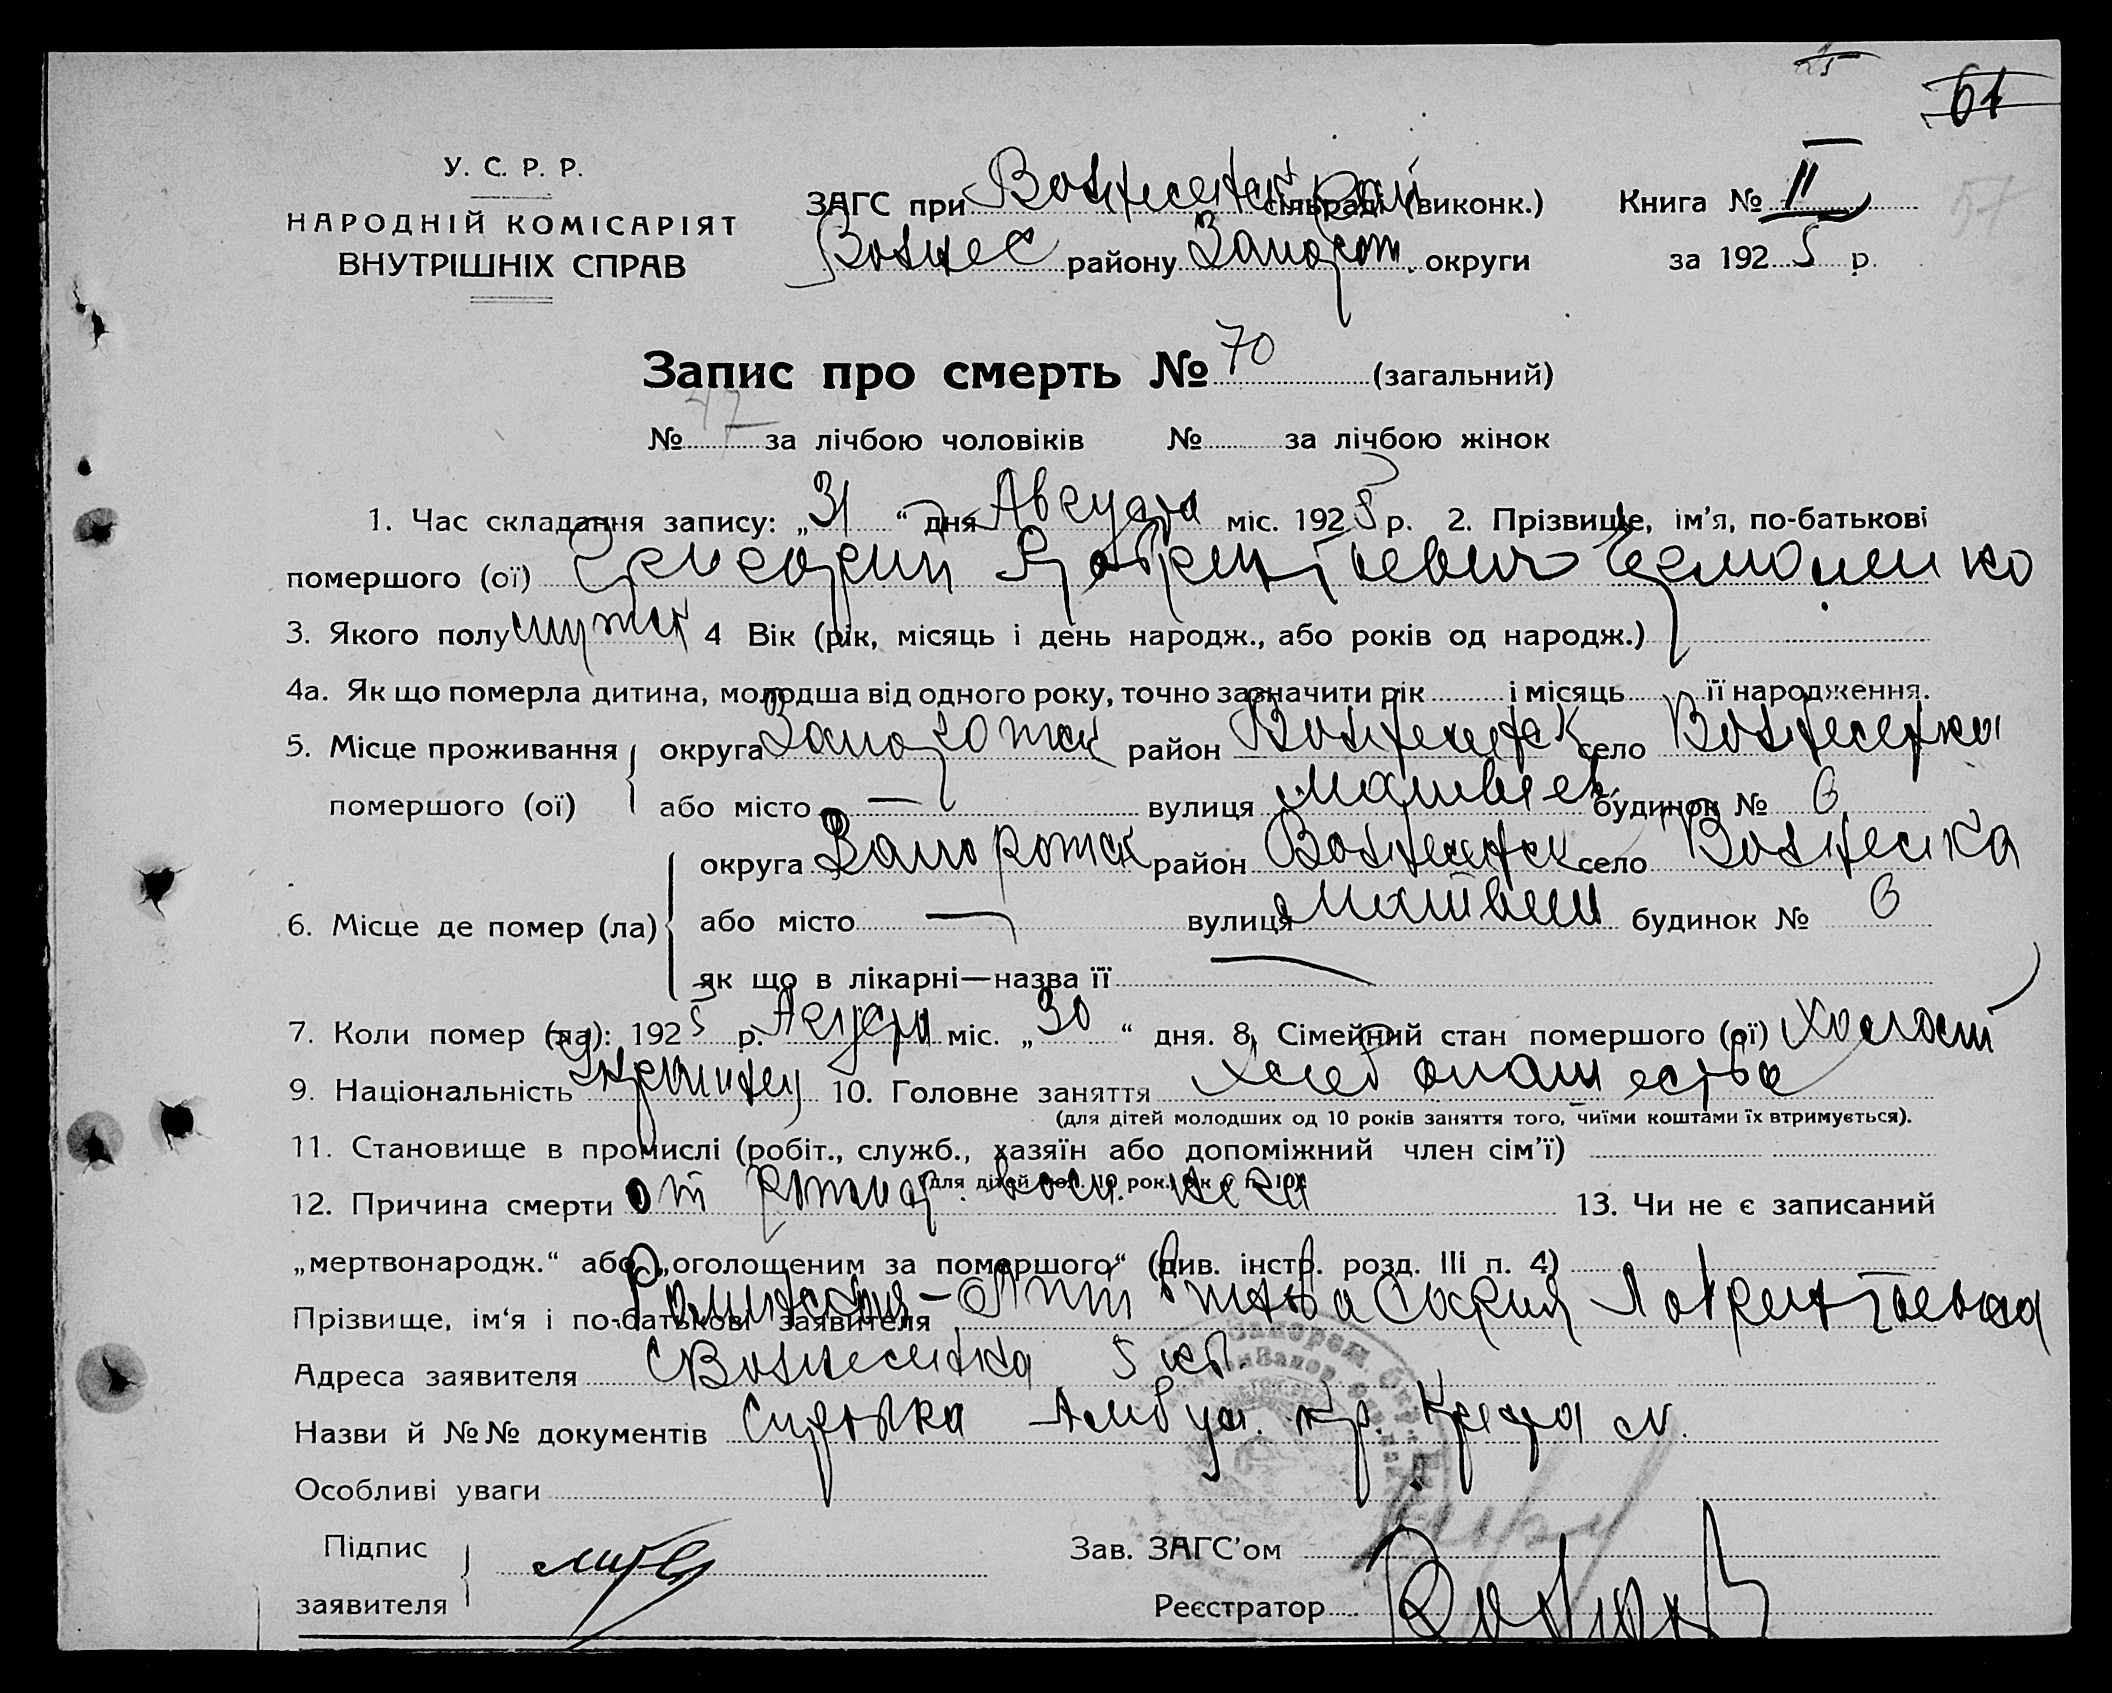 61
У. С. Р. Р.
НАРОДНІЙ КОМІСАРІЯТ
ВНУТРІШНІХ СПРАВ
ЗАГС при сільраді (виконк.)
Вознес району Запорож. округи
Книга № II
за 1925 р.
57
Запис про смерть № 70 (загальний)
№ 47 за лічбою чоловіків № за лічбою жінок
1. Час складання запису: „31“ дня Августа міс. 1925 р. 2. Прізвище, ім’я, по-батькові
помершого (ої) Григорий Лаврентьевич
3. Якого полу мужск 4 Вік (рік, місяць і день народж., або років од народж.)
4а. Як що померла дитина, молодша від одного року, точно зазначити рік і місяць її народження.
5. Місце проживання помершого (ої)
округа Запорожск район Вознесенск село Вознесенка
або місто — вулиця будинок № 6
6. Місце де помер (ла)
округа Запорожск район Вознесенск село Вознесенка
або місто — вулиця будинок № 6
як що в лікарні—назва її —
7. Коли помер (ла): 1925 р. Августа міс. „30“ дня. 8. Сімейний стан помершого (ої) холост
9. Національність Украинец 10. Головне заняття хлебопашество
(для дітей молодших од 10 років заняття того, чиїми коштами їх втримується).
11. Становище в промислі (робіт., служб., хазяїн або допоміжний член сім’ї)
(для дітей мол. 10 рок. як у п. 10)
12. Причина смерти от 13. Чи не є записаний
„мертвонародж.“ або „оголошеним за помершого“ (див. інстр. розд. III п. 4)
Прізвище, ім‘я і по-батькові заявителя София Лаврентьевна
Адреса заявителя с Вознесенка
Назви й №№ документів справка Амбул. Кр. Креста №.
Особливі уваги
Підпис заявителя
Зав. ЗАГС’ом
Реєстратор